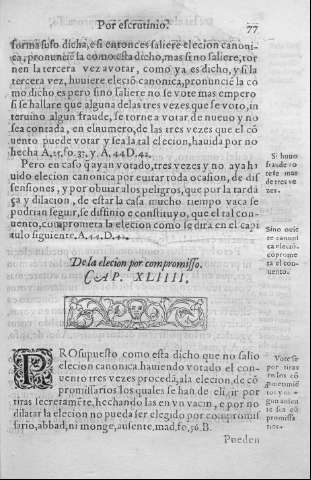 Por escrutinio. 77
forma suso dicha, e si entonces saliere elecion canoni-
ca, pronuncie la como esta dicho, mas si no saliere, tor
nen la tercera vez a votar, como ya es dicho, y si la
tercera vez, huuiere elecio canonica, pronuncie la co
mo dicho es pero sino saliere no se vote mas empero
si se hallare que alguna delas tres vezes que se voto, in
teruino algun fraude, se torne a votar de nueuo y no
sea contada, en el numero, de las tres vezes que el cō
uento puede votar y sea la tal elecion, hauida por no
hecha A, 15. fo. 37. y A, 44 D. 42.
Pero en caso q̄ ayan votado, tres vezes y no aya ha
uido elecion canonica por euitar toda ocasion, de dis
sensiones, y por obuiar a los peligros, que por la tardā
ça y dilacion, de estar la casa mucho tiempo vaca se
podrian seguir, se distinio e constituyo, que el tal con-
uento, compromiera la elecion como se dira en el capi
tulo siguiente. A. 44. D. 42.
Si huuo
fraude
mas
de tres ve
zes.
Sino
canoni
ca
uento.
De la elecion por compromisso.
CAP. XLIIII.
PROsupuesto como esta dicho que no salio
elecion canonica hauiendo votado el con-
uento tres vezes procedā, ala elecion, de cō
promissarios los quales se han de elegir por
tiras secretamēte, hechando las en vn vacin, e por no
dilatar la elecion no pueda ser elegido por compromis
sario, abbad, ni monge, ausente, mad, fo, 56. B.
Vote se
por tiras
en los cō
promissa
rios.
Pueden